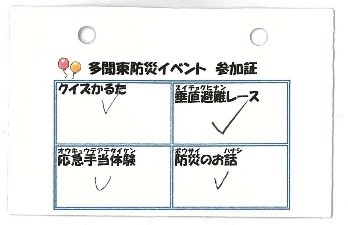 多聞東防災イベント 参加証
クイズかるた
スイチョクヒナン
垂直避難レース
オウキュウテアテタイケン
応急手当体験
ボウサイ ハナシ
防災のお話